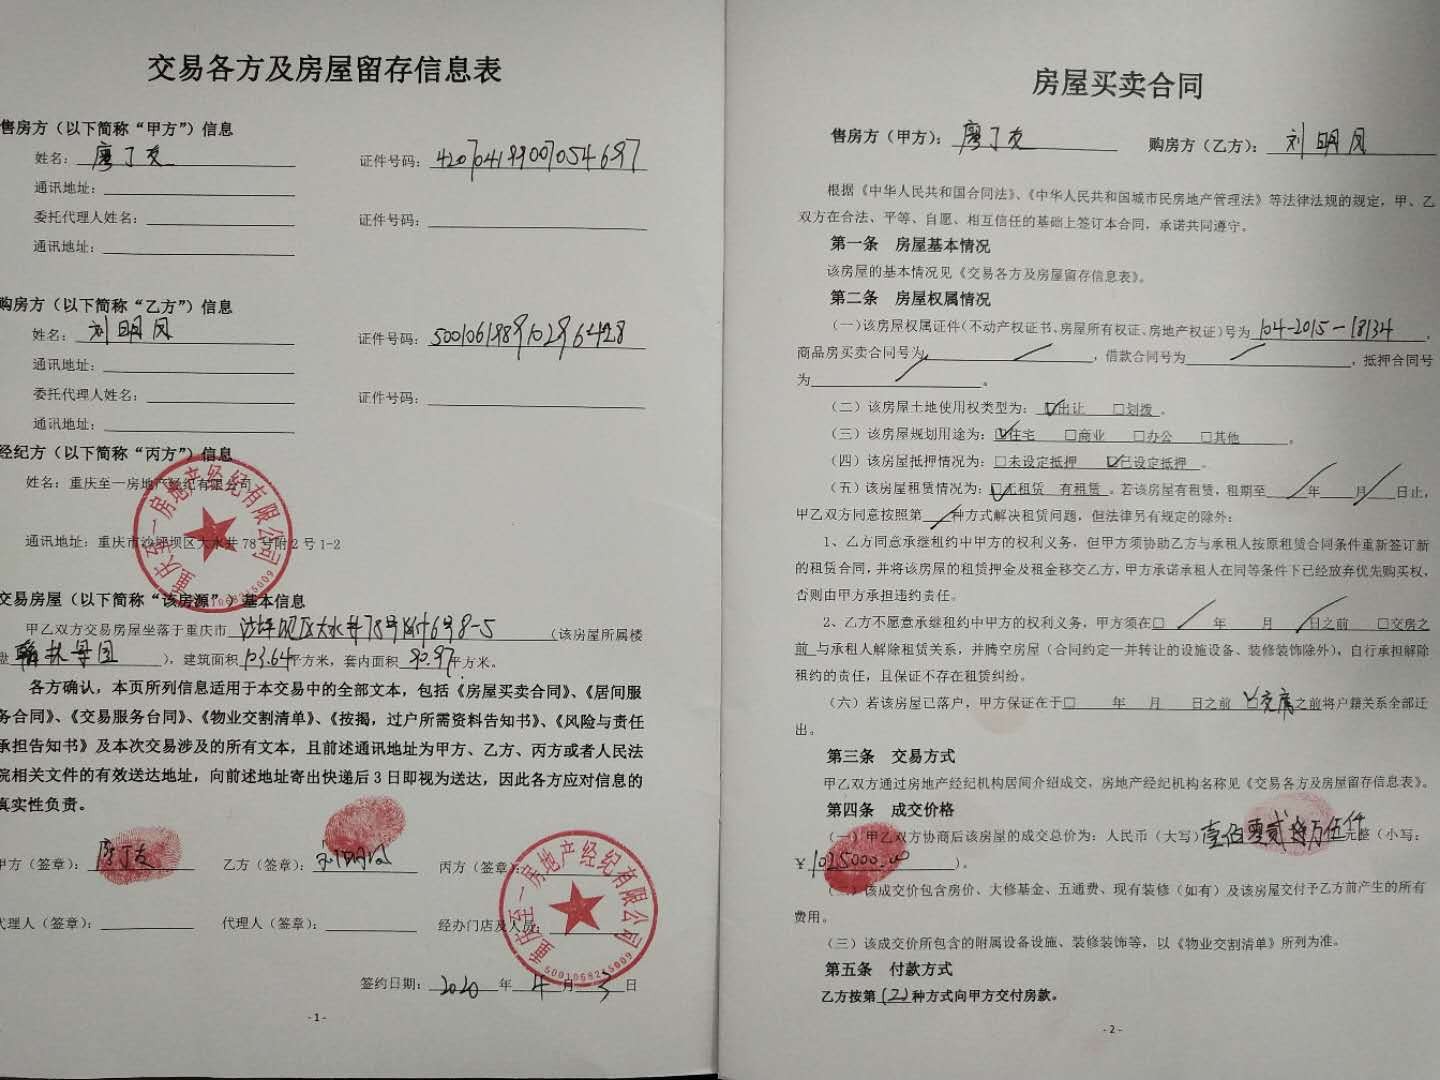 交易各方及房屋留存信息表
售房方（以下简称“甲方”）信息
姓名：廖丁友 证件号码：420704199007054697
通讯地址：
委托代理人姓名： 证件号码：
通讯地址：
购房方（以下简称“乙方”）信息
姓名：刘明凤 证件号码：500106198910296428
通讯地址：
委托代理人姓名： 证件号码：
通讯地址：
经纪方（以下简称“丙方”）信息
姓名：重庆至一房地产经纪有限公司
通讯地址：重庆市沙坪坝区大水井78号附2号1-2
重庆至一房地产经纪有限公司
交易房屋（以下简称“该房源”）基本信息
甲乙双方交易房屋坐落于重庆市 沙坪坝区大水井78号附6号8-5 （该房屋所属楼
盘 翰林 园 ），建筑面积 103.64 平方米，套内面积 90.97 平方米。
各方确认，本页所列信息适用于本交易中的全部文本，包括《房屋买卖合同》、《居间服
务合同》、《交易服务合同》、《物业交割清单》、《按揭，过户所需资料告知书》、《风险与责任
承担告知书》及本次交易涉及的所有文本，且前述通讯地址为甲方、乙方、丙方或者人民法
院相关文件的有效送达地址，向前述地址寄出快递后3日即视为送达，因此各方应对信息的
真实性负责。
甲方（签章）：廖丁友 乙方（签章）：刘明凤 丙方（签章）：
代理人（签章）： 代理人（签章）： 经办门店及人员：
重庆至一房地产经纪有限公司
签约日期：2020 年 4 月 3 日
- 1 -
房屋买卖合同
售房方（甲方）：廖丁友 购房方（乙方）：刘明凤
根据《中华人民共和国合同法》、《中华人民共和国城市民房地产管理法》等法律法规的规定，甲、乙
双方在合法、平等、自愿、相互信任的基础上签订本合同，承诺共同遵守。
第一条 房屋基本情况
该房屋的基本情况见《交易各方及房屋留存信息表》。
第二条 房屋权属情况
（一）该房屋权属证件（不动产权证书、房屋所有权证、房地产权证）号为 104-2015-18134 ，
商品房买卖合同号为 / ，借款合同号为 / ，抵押合同号
为 / 。
（二）该房屋土地使用权类型为：☑出让 □划拨 。
（三）该房屋规划用途为：☑住宅 □商业 □办公 □其他 。
（四）该房屋抵押情况为：□未设定抵押 ☑已设定抵押 。
（五）该房屋租赁情况为：☑无租赁 有租赁 。若该房屋有租赁，租期至 / 年 月 / 日止，
甲乙双方同意按照第 / 种方式解决租赁问题，但法律另有规定的除外：
1、乙方同意承继租约中甲方的权利义务，但甲方须协助乙方与承租人按原租赁合同条件重新签订新
的租赁合同，并将该房屋的租赁押金及租金移交乙方，甲方承诺承租人在同等条件下已经放弃优先购买权，
否则由甲方承担违约责任。
2、乙方不愿意承继租约中甲方的权利义务，甲方须在□ / 年 月 / 日之前 □交房之
前 与承租人解除租赁关系，并腾空房屋（合同约定一并转让的设施设备、装修装饰除外），自行承担解除
租约的责任，且保证不存在租赁纠纷。
（六）若该房屋已落户，甲方保证在于□ 年 月 日之前 ☑交房之前将户籍关系全部迁
出。
第三条 交易方式
甲乙双方通过房地产经纪机构居间介绍成交，房地产经纪机构名称见《交易各方及房屋留存信息表》。
第四条 成交价格
（一）甲乙双方协商后该房屋的成交总价为：人民币（大写）壹佰零贰拾万伍仟元整（小写：
￥ 1025000.00 ）。
（二）该成交价包含房价、大修基金、五通费、现有装修（如有）及该房屋交付予乙方前产生的所有
费用。
（三）该成交价所包含的附属设备设施、装修装饰等，以《物业交割清单》所列为准。
第五条 付款方式
乙方按第（2）种方式向甲方交付房款。
- 2 -